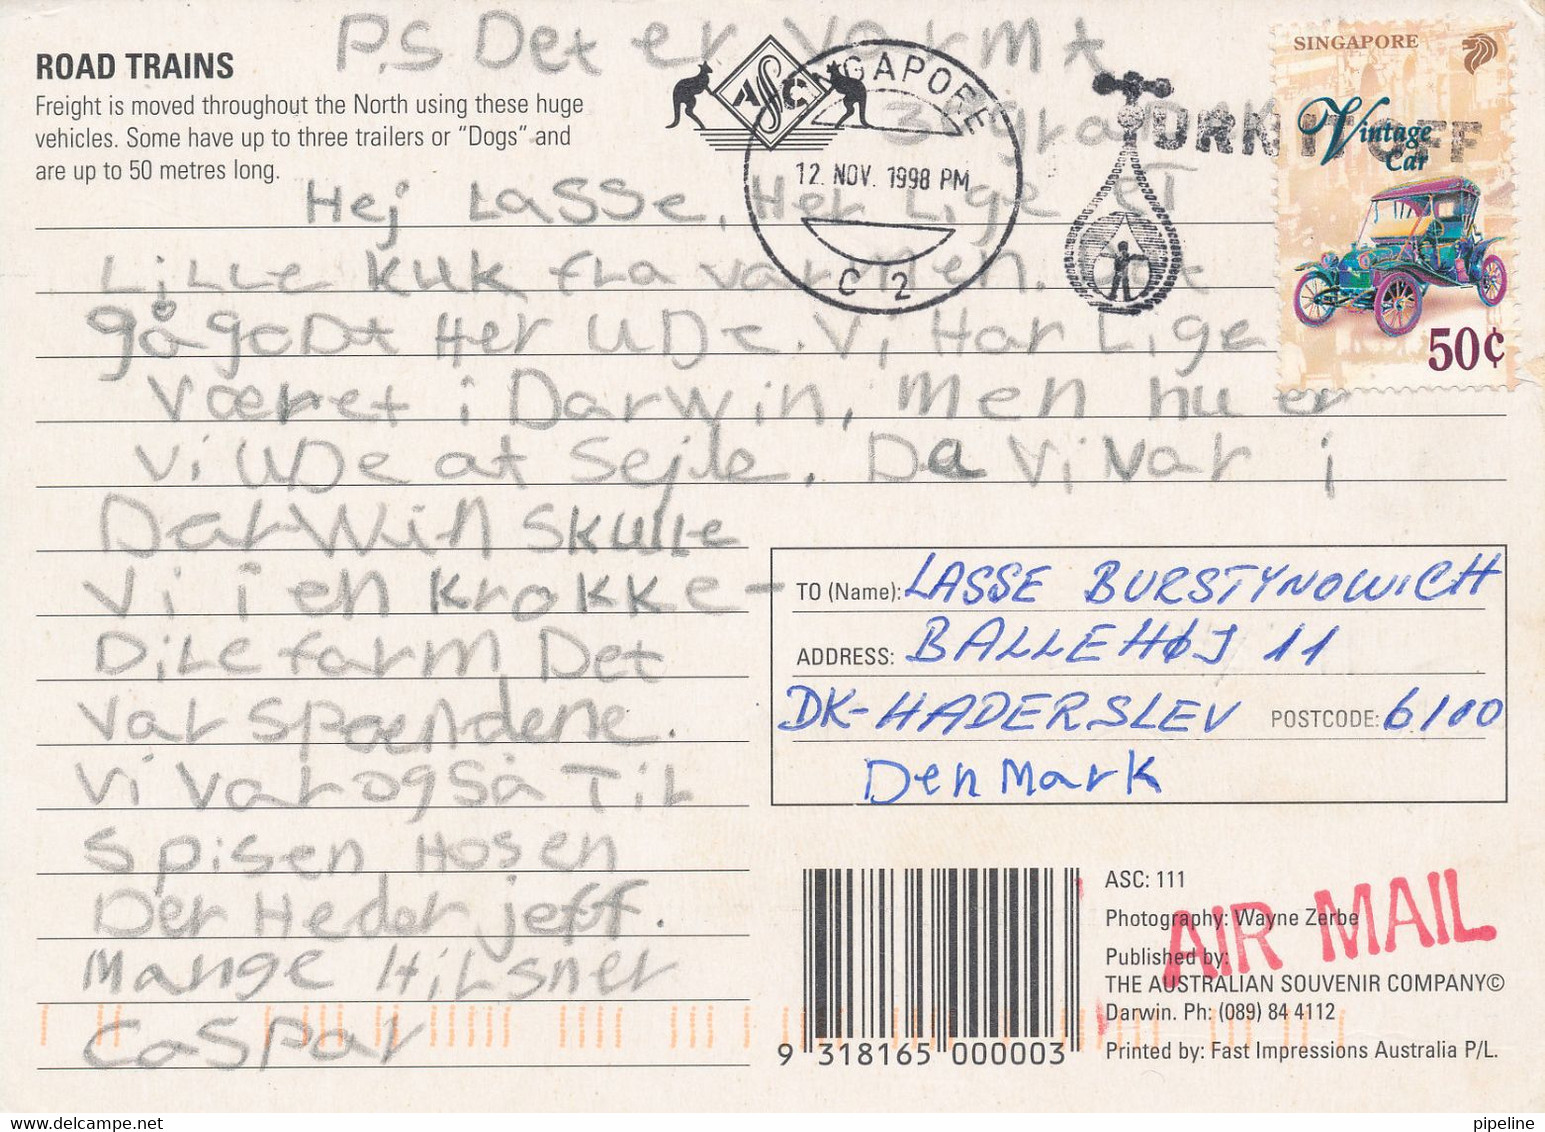 P.S Det er Varmt
39 grader
ROAD TRAINS
Freight is moved throughout the North using these huge
vehicles. Some have up to three trailers or "Dogs" and
are up to 50 metres long.
ASC
SINGAPORE
12. NOV. 1998 PM
C 2
TURN IT OFF
SINGAPORE
Vintage
Car
50¢
Hej Lasse, Her Lige ET
LiLLe KUK fra varmen.
gå godt Her UDe. Vi Har Lige
Været i Darwin, Men nu er
Vi UDe at Sejle. Da Vi Var i
Darwin skulle
Vi i en krokke-
DiLe farm. Det
Var Spændene.
Vi Var også TiL
Spisen Hosen
Der Heder jeff.
Mange HiLsner
Caspar
TO (Name): LASSE BURSTYNOWICH
ADDRESS: BALLEHØJ 11
DK-HADERSLEV POSTCODE: 6100
Denmark
ASC: 111
Photography: Wayne Zerbe
Published by:
THE AUSTRALIAN SOUVENIR COMPANY©
Darwin. Ph: (089) 84 4112
Printed by: Fast Impressions Australia P/L.
AIR MAIL
9 318165 000003
pipeline